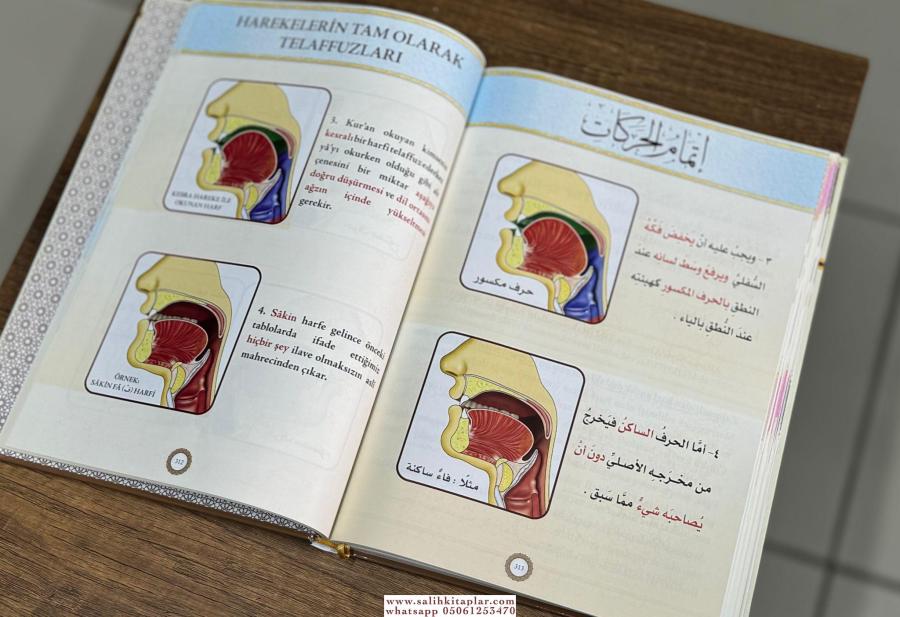 HAREKELERİN TAM OLARAK
TELAFFUZLARI
3. Kur'an okuyan kimsenin
kesralı bir harfi telaffuz ederken
yâ'yı okurken olduğu gibi
çenesini bir miktar aşağıya
doğru düşürmesi ve dil ortasının
ağzın içinde yükselmesi
gerekir.
KESRA HAREKE İLE
OKUNAN HARF
4. Sâkin harfe gelince önceki
tablolarda ifade ettiğimiz
hiçbir şey ilave olmaksızın asli
mahrecinden çıkar.
ÖRNEK:
SÂKİN FÂ (فْ) HARFİ
312
إتمام الحركات
٣ - ويجبُ عليه أنْ يخفضَ فكَّهُ
السُّفليَّ ويرفعَ وسَطَ لسانه عندَ
النطقِ بالحرف المكسور كهيئته
عندَ النُّطقِ بالياء .
حرف مكسور
٤- أمَّا الحرفُ الساكنُ فيَخرجُ
من مخـرَجـِه الأصليِّ دونَ أنْ
يُصاحبَه شيءٌ ممَّا سَبق .
مثلًا : فاءٌ ساكنة
313
www.salihkitaplar.com
whatsapp 05061253470